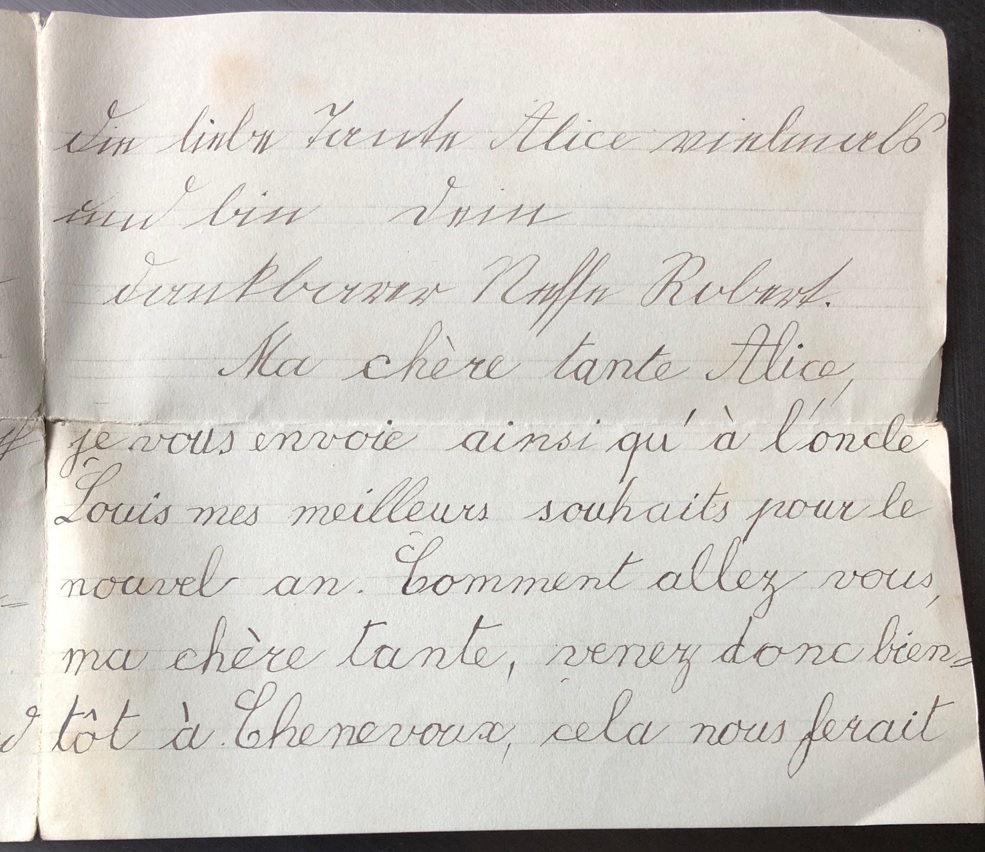 die liebe Tante Alice vielmals
und bin dein
dankbarer Neffe Robert.
Ma chère tante Alice,
je vous envoie ainsi qu'à l'oncle
Louis mes meilleurs souhaits pour le
nouvel an. Comment allez vous,
ma chère tante, venez donc bien=
tôt à Chenevoux, cela nous ferait